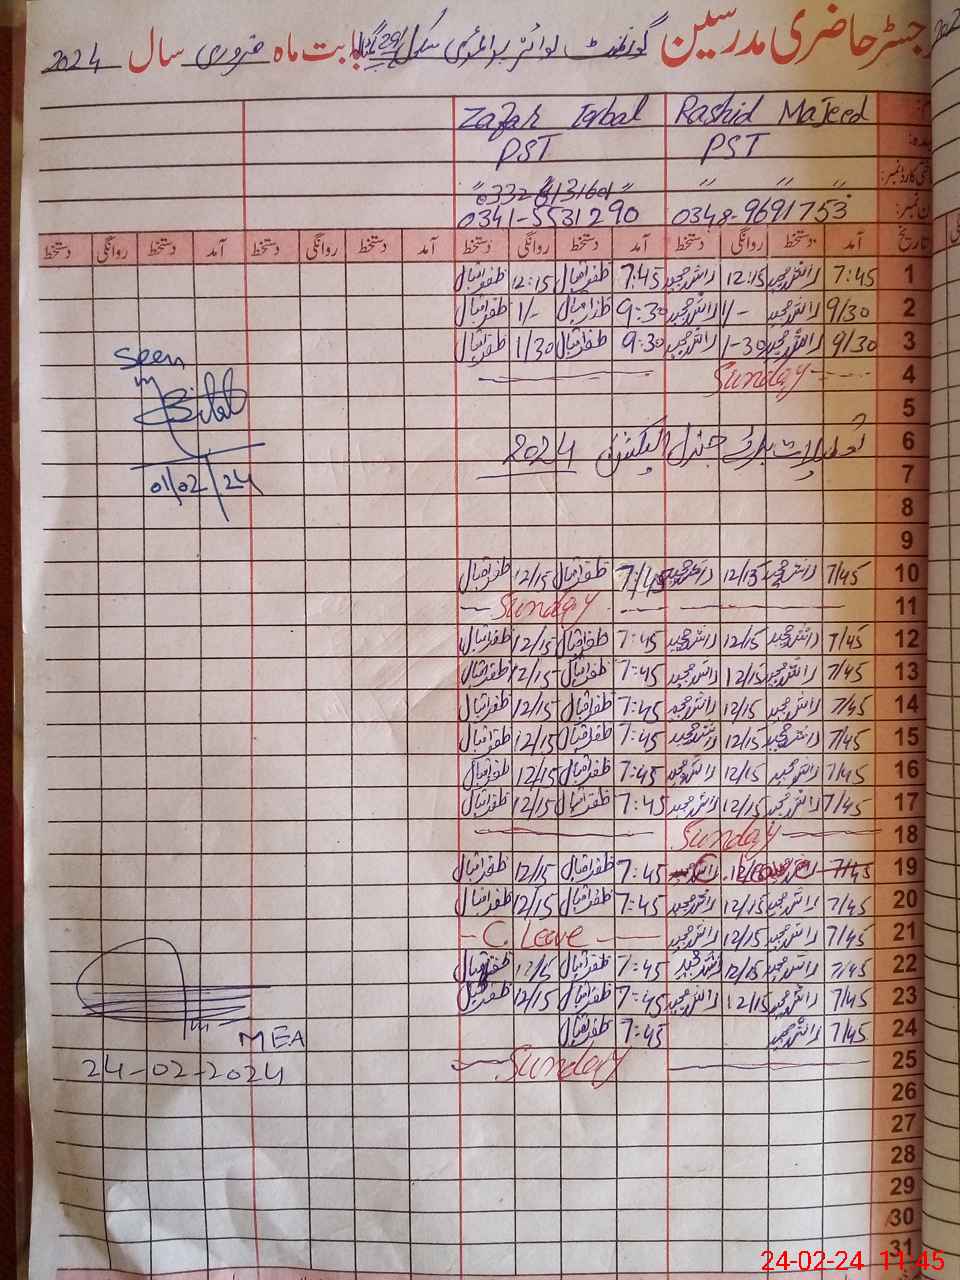 رجسٹر حاضری مدرسین گورنمنٹ بوائز پرائمری سکول بابت ماہ فروری سال 2024
Rashid Majeed Zafar Iqbal
PST PST
" " " "0332-6131601"
0348-9691753 0341-5531290
تاریخ آمد دستخط روانگی دستخط آمد دستخط روانگی دستخط آمد دستخط روانگی دستخط آمد دستخط روانگی دستخط
1 7:45 راشد مجید 12:15 راشد مجید 7:45 ظفر اقبال 12:15 ظفر اقبال
2 9/30 راشد مجید 1/- راشد مجید 9:30 ظفر اقبال 1/- ظفر اقبال
3 9/30 راشد مجید 1-30 راشد مجید 9:30 ظفر اقبال 1/30 ظفر اقبال
4 Sunday
5
6 تعطیلات برائے جنرل الیکشن 2024
7
8
9
10 7/45 راشد مجید 12/15 راشد مجید 7/45 ظفر اقبال 12/15 ظفر اقبال
11 Sunday
12 7/45 راشد مجید 12/15 راشد مجید 7:45 ظفر اقبال 12/15 ظفر اقبال
13 7/45 راشد مجید 12/15 راشد مجید 7:45 ظفر اقبال 12/15 ظفر اقبال
14 7/45 راشد مجید 12/15 راشد مجید 7:45 ظفر اقبال 12/15 ظفر اقبال
15 7/45 راشد مجید 12/15 راشد مجید 7:45 ظفر اقبال 12/15 ظفر اقبال
16 7/45 راشد مجید 12/15 راشد مجید 7:45 ظفر اقبال 12/15 ظفر اقبال
17 7/45 راشد مجید 12/15 راشد مجید 7:45 ظفر اقبال 12/15 ظفر اقبال
18 Sunday
19 7/45 7:45 ظفر اقبال 12/15 ظفر اقبال
20 7/45 راشد مجید 12/15 راشد مجید 7:45 ظفر اقبال 12/15 ظفر اقبال
21 7/45 راشد مجید 12/15 راشد مجید C. Leave
22 7/45 راشد مجید 12/15 راشد مجید 7:45 ظفر اقبال 12/15 ظفر اقبال
23 7/45 راشد مجید 12/15 راشد مجید 7:45 ظفر اقبال 12/15 ظفر اقبال
24 7/45 راشد مجید 7:45 ظفر اقبال
25 Sunday
26
27
28
29
30
31
Seen
Bilal
01/02/24
MEA
24-02-2024
24-02-24 11:45